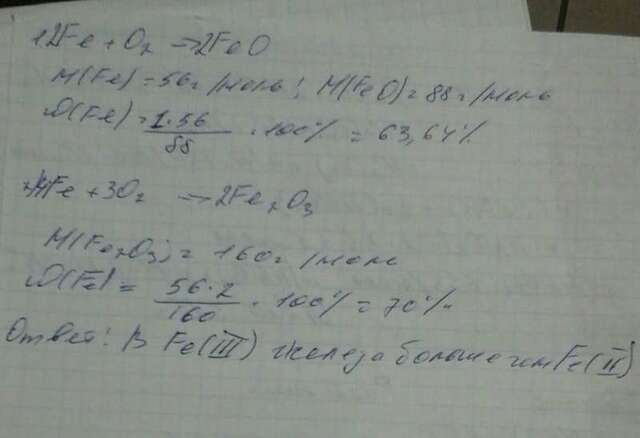 2Fe + O₂ → 2FeO
M(Fe) = 56 г/моль; M(FeO) = 88 г/моль
ω(Fe) = 1·56 / 88 · 100% = 63,64%
4Fe + 3O₂ → 2Fe₂O₃
M(Fe₂O₃) = 160 г/моль
ω(Fe) = 56·2 / 160 · 100% = 70%
Ответ: В Fe(III) железа больше чем Fe(II)